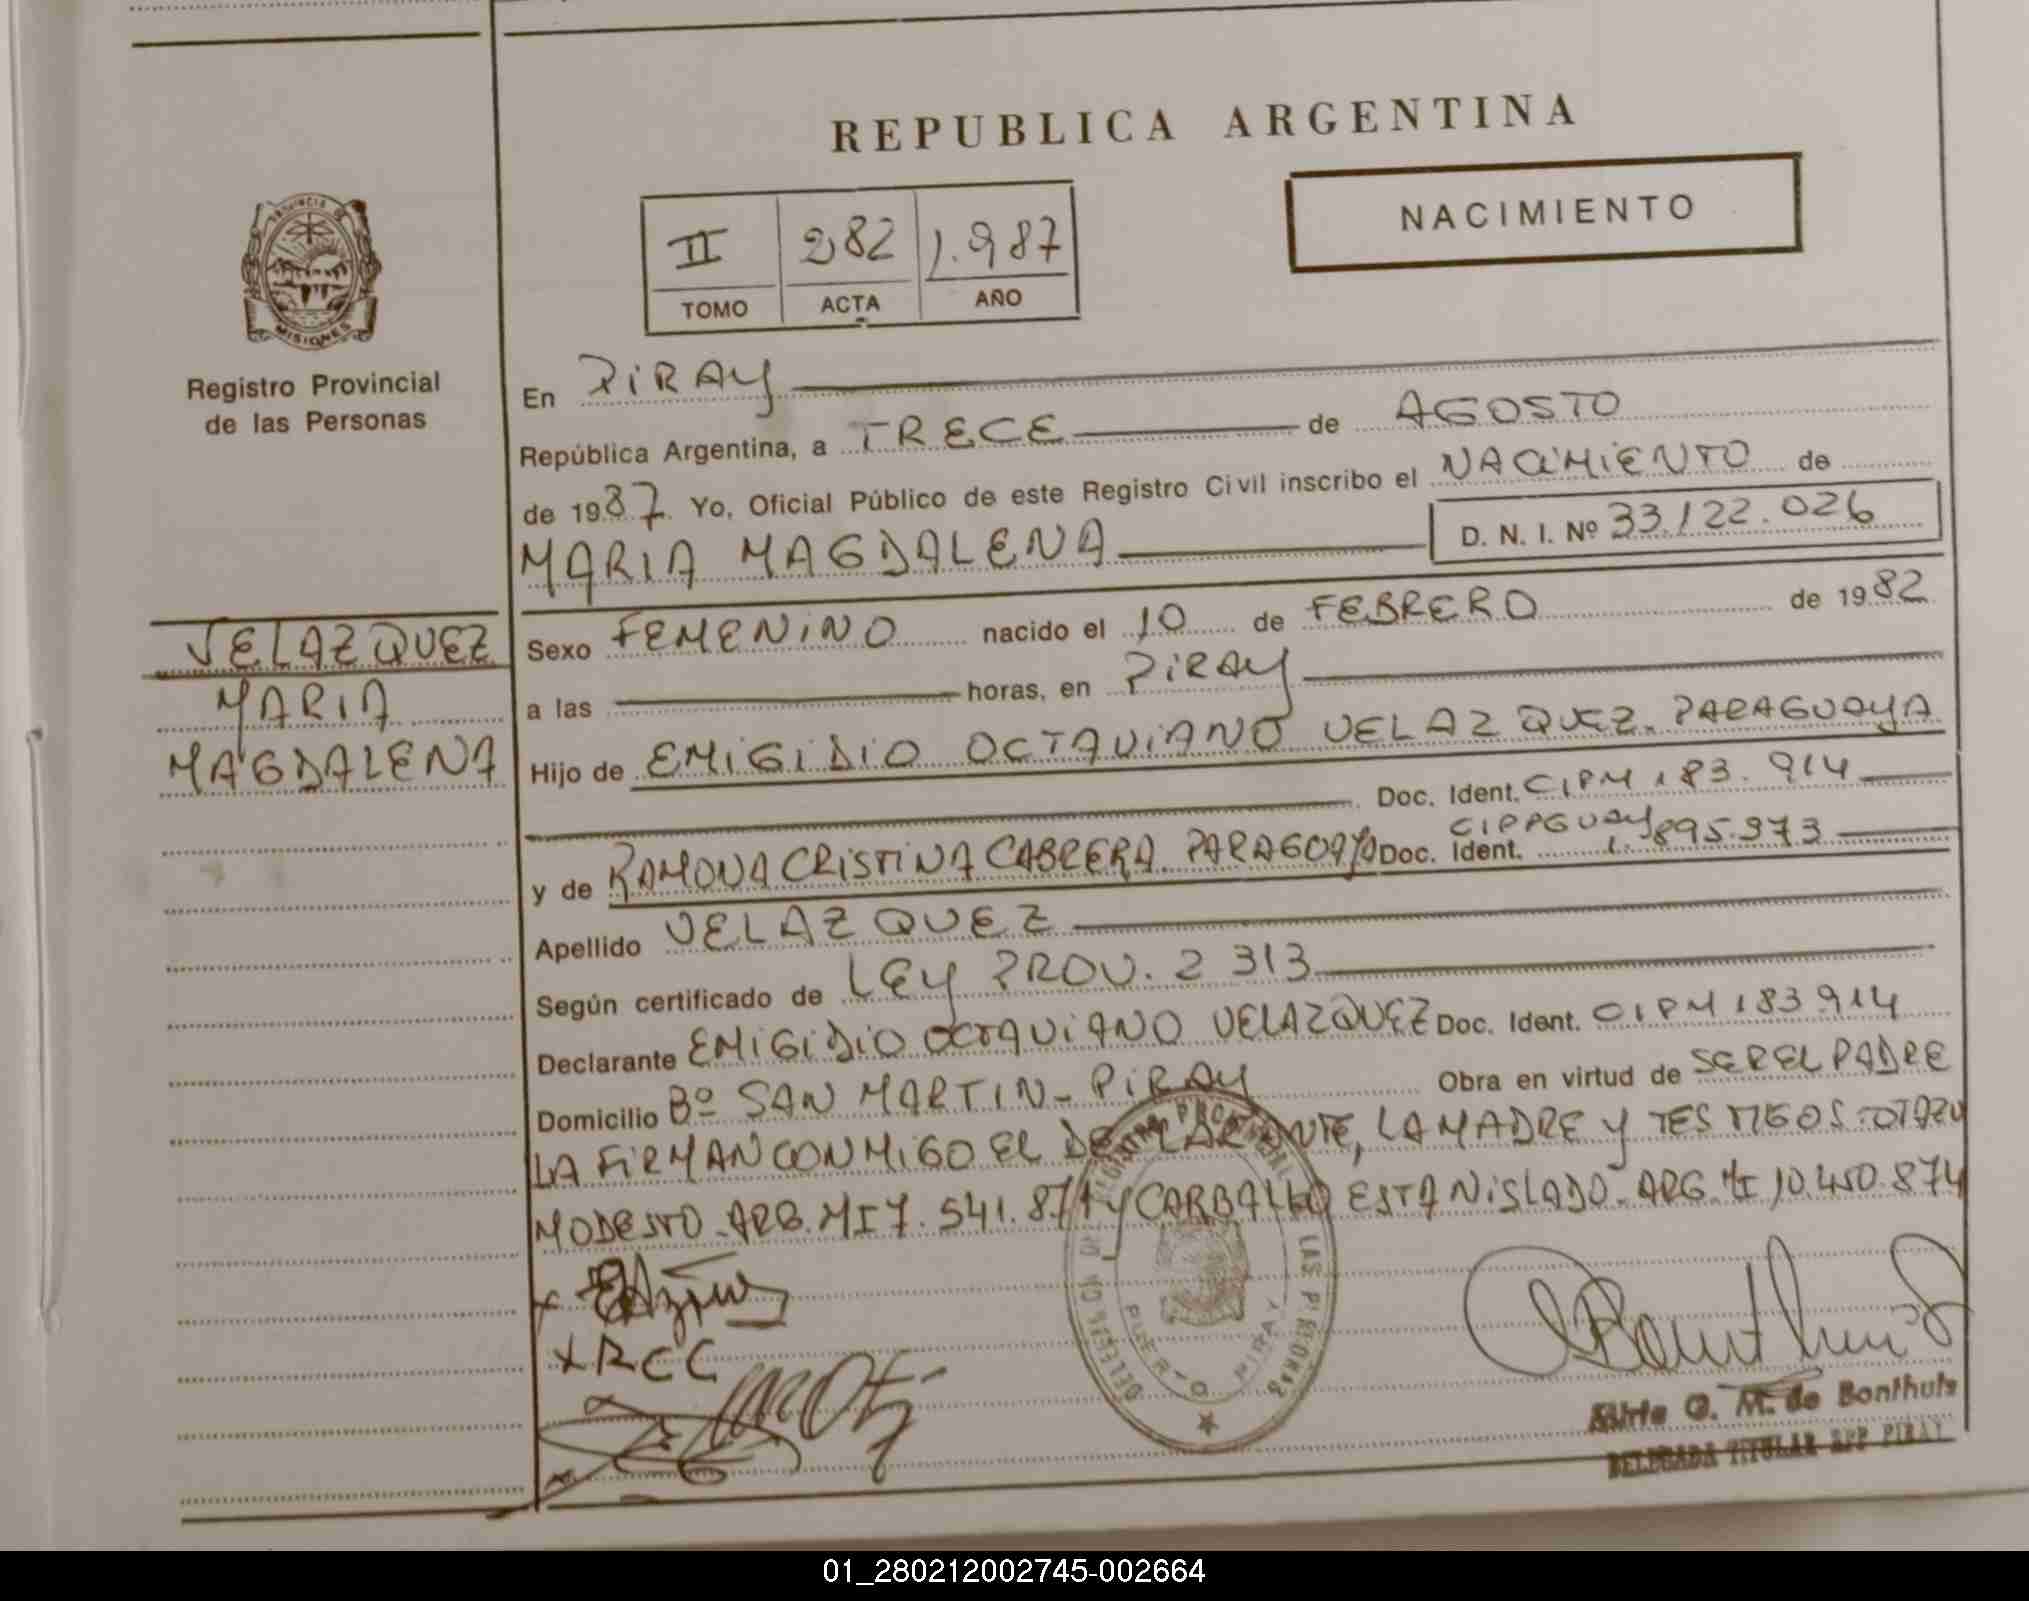 REPUBLICA ARGENTINA
NACIMIENTO
II 282 1.987
TOMO ACTA AÑO
PROVINCIA DE
MISIONES
Registro Provincial
de las Personas
VELAZQUEZ
MARIA
MAGDALENA
En PIRAY
República Argentina, a TRECE de AGOSTO
de 1987. Yo, Oficial Público de este Registro Civil inscribo el NACIMIENTO de
MARIA MAGDALENA D. N. I. Nº 33.122.026
Sexo FEMENINO nacido el 10 de FEBRERO de 1982
a las horas, en PIRAY
Hijo de EMIGIDIO OCTAVIANO VELAZQUEZ. PARAGUAYA
Doc. Ident. CIPM 183.914
y de RAMONA CRISTINA CABRERA. PARAGUAYA Doc. Ident. CIPPGUAY 1.895.973
Apellido VELAZQUEZ
Según certificado de LEY PROV. 2313
Declarante EMIGIDIO OCTAVIANO VELAZQUEZ Doc. Ident. CIPM 183.914
Domicilio Bº SAN MARTIN - PIRAY Obra en virtud de SER EL PADRE
LA FIRMAN CONMIGO EL DECLARANTE, LA MADRE Y TESTIGOS: OTAZU
MODESTO. ARG. MI 7.541.871 y CARBALLO ESTANISLADO. ARG. MI 10.450.874
x
x RCC
DELEGACION DE REGISTRO PROVINCIAL LAS PERSONAS
PUERTO PIRAY
Mirta G. M. de Bonthuis
DELEGADA TITULAR RPP PIRAY
01_280212002745-002664